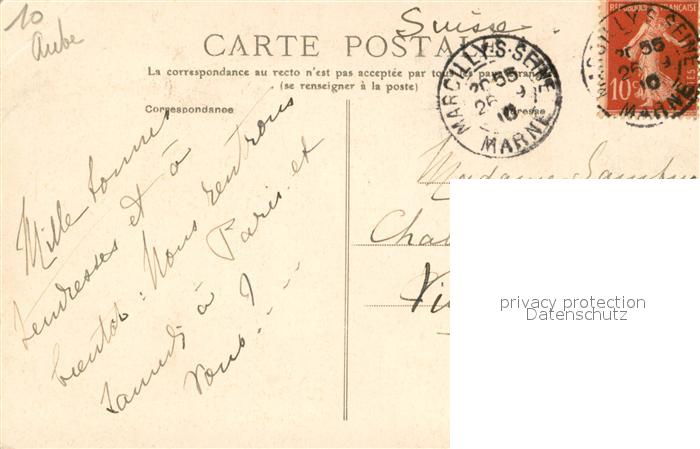 10
Aube
Suisse
CARTE POSTALE
La correspondance au recto n'est pas acceptée par tous les pays étrangers
(se renseigner à la poste)
Correspondance
Adresse
Mille bonnes
tendresses et à
bientôt : Nous rentrons
samedi à Paris. et
vous - - ?
Madame
Chal
Vi
MARCILLY-S-SEINE
20 55
26 9
10
MARNE
REPUBLIQUE FRANÇAISE
10
MARCILLY-S-SEINE
20 55
26 9
10
MARNE
privacy protection
Datenschutz